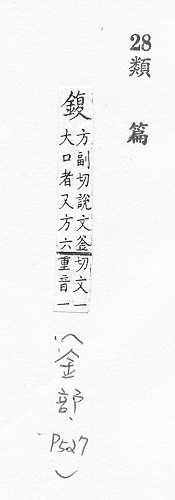 28
類篇
鍑
方副切說文釜
大口者又方六切文一
重音一
(金部、P527)